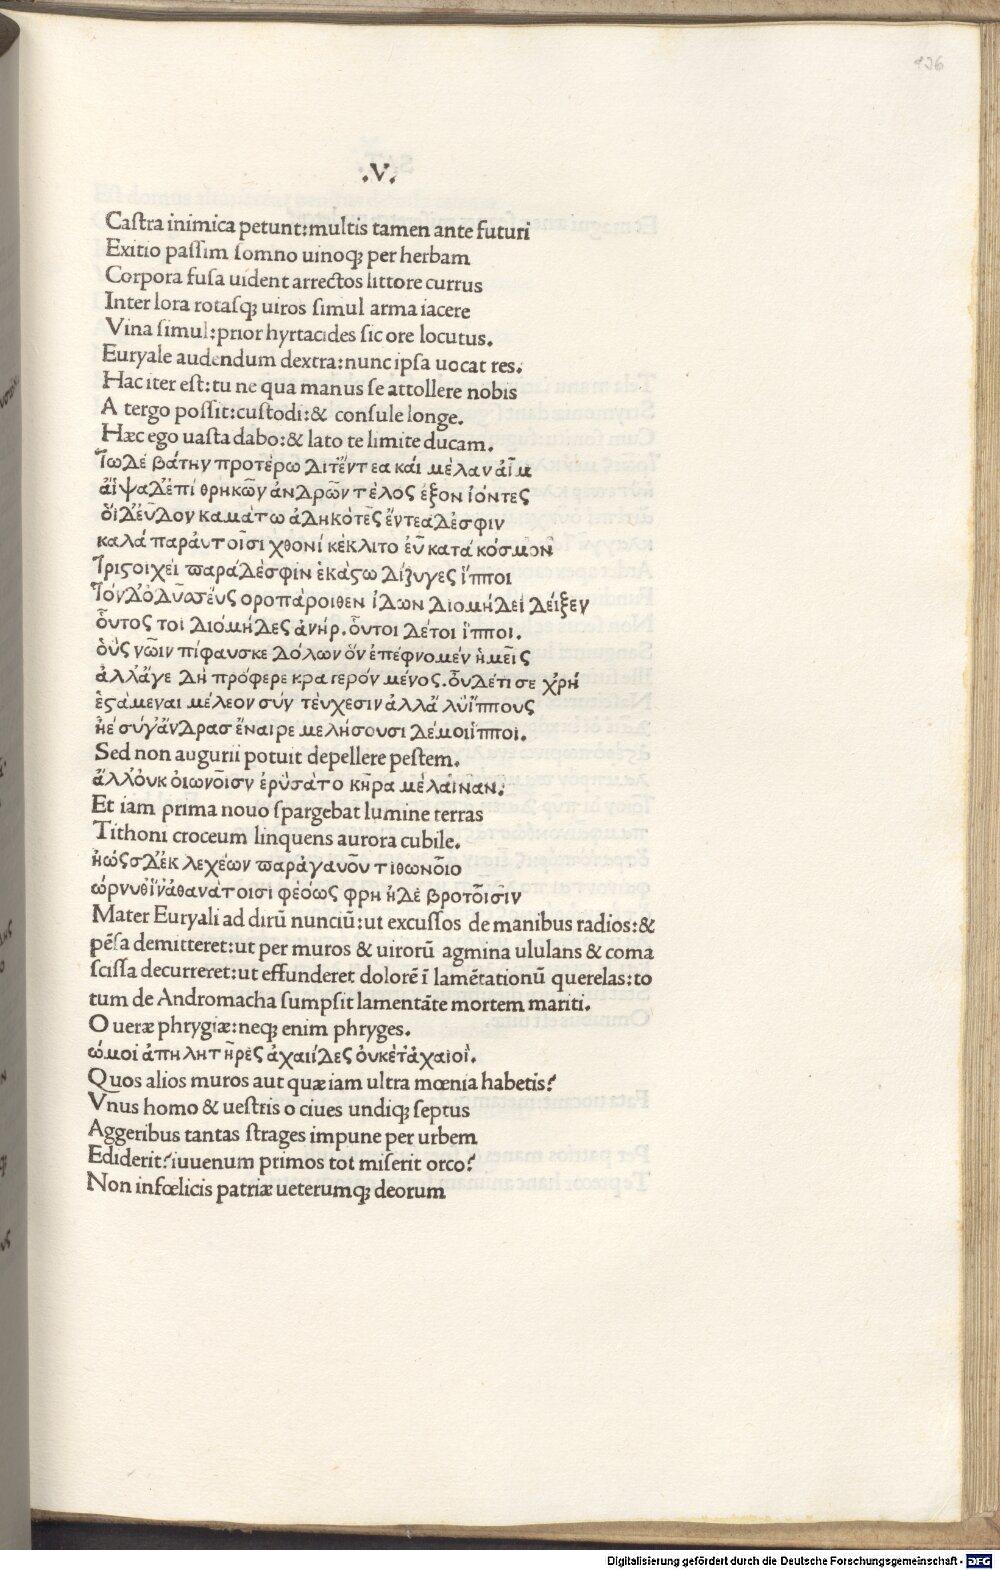 136
.V.
Caſtra inimica petunt:multis tamen ante futuri
Exitio paſſim ſomno uinoq; per herbam
Corpora fuſa uident arrectos littore currus
Inter lora rotaſq; uiros ſimul arma iacere
Vina ſimul:prior hyrtacides ſic ore locutus.
Euryale audendum dextra:nunc ipſa uocat res.
Hac iter eſt:tu ne qua manus ſe attollere nobis
A tergo poſſit:cuſtodi:& conſule longe.
Hæc ego uaſta dabo:& lato te limite ducam.
Τὼ δὲ βάτην προτέρω διτἔντεα καὶ μέλαν αἷμ
αἶψα δ'ἐπὶ θρηκῶν ἀνδρῶν τέλος ἐξον ἰόντες
ὅι δ'εὗδον καμάτω ἀδηκότες ἔντεα δέσφιν
καλά παράυτοῖσι χθονί κέκλιτο ἐῦ κατά κόσμον
Τριςοιχεί παρά δέσφιν ἑκάςω δίζυγες ἵπποι
Τόνδ'ὀδυσεύς οροπάροιθεν ἰδών διομήδεϊ δεῖξεν
οὗτος τοι διόμηδες ἀνήρ.οὗτοι δέτοι ἵπποι.
οὓς νῶιν πίφαυσκε δόλων ὅν ἐπέφνομέν ἡμεῖς
ἀλλἄγε δὴ πρόφερε κρατερόν μένος.οὐδέτι σε χρή
ἑςάμεναι μέλεον σύν τέυχεσιν ἀλλά λῦἵππους
ἠέ σύγἄνδρας ἔναιρε μελήσουσι δέμοιἵπποι.
Sed non augurii potuit depellere peſtem.
ἄλλ'ὀυκ οἰωνοῖσιν ἐρύσατο κῆρα μέλαιναν.
Et iam prima nouo ſpargebat lumine terras
Tithoni croceum linquens aurora cubile.
ἠώςσδ'ἐκ λεχέων παράγαυοῦ τιθωνοῖο
ὠρνυθἵν'ἀθανάτοισι φέόως φρη ἠδέ βροτοῖσιν
Mater Euryali ad dirū nunciū:ut excuſſos de manibus radios:&
pēſa demitteret:ut per muros & uirorū agmina ululans & coma
ſciſſa decurreret:ut effunderet dolorē ī lamētationū querelas:to
tum de Andromacha ſumpſit lamentāte mortem mariti.
O ueræ phrygiæ:neq; enim phryges.
ὤμοι ἀπηλητῆρες ἀχαιΐδες ὀυκἐτἀχαιοί.
Quos alios muros aut quæ iam ultra mœnia habetis?
Vnus homo & ueſtris o ciues undiq; ſeptus
Aggeribus tantas ſtrages impune per urbem
Ediderit?iuuenum primos tot miſerit orco?
Non infœlicis patriæ ueterumq; deorum
Digitalisierung gefördert durch die Deutsche Forschungsgemeinschaft - DFG